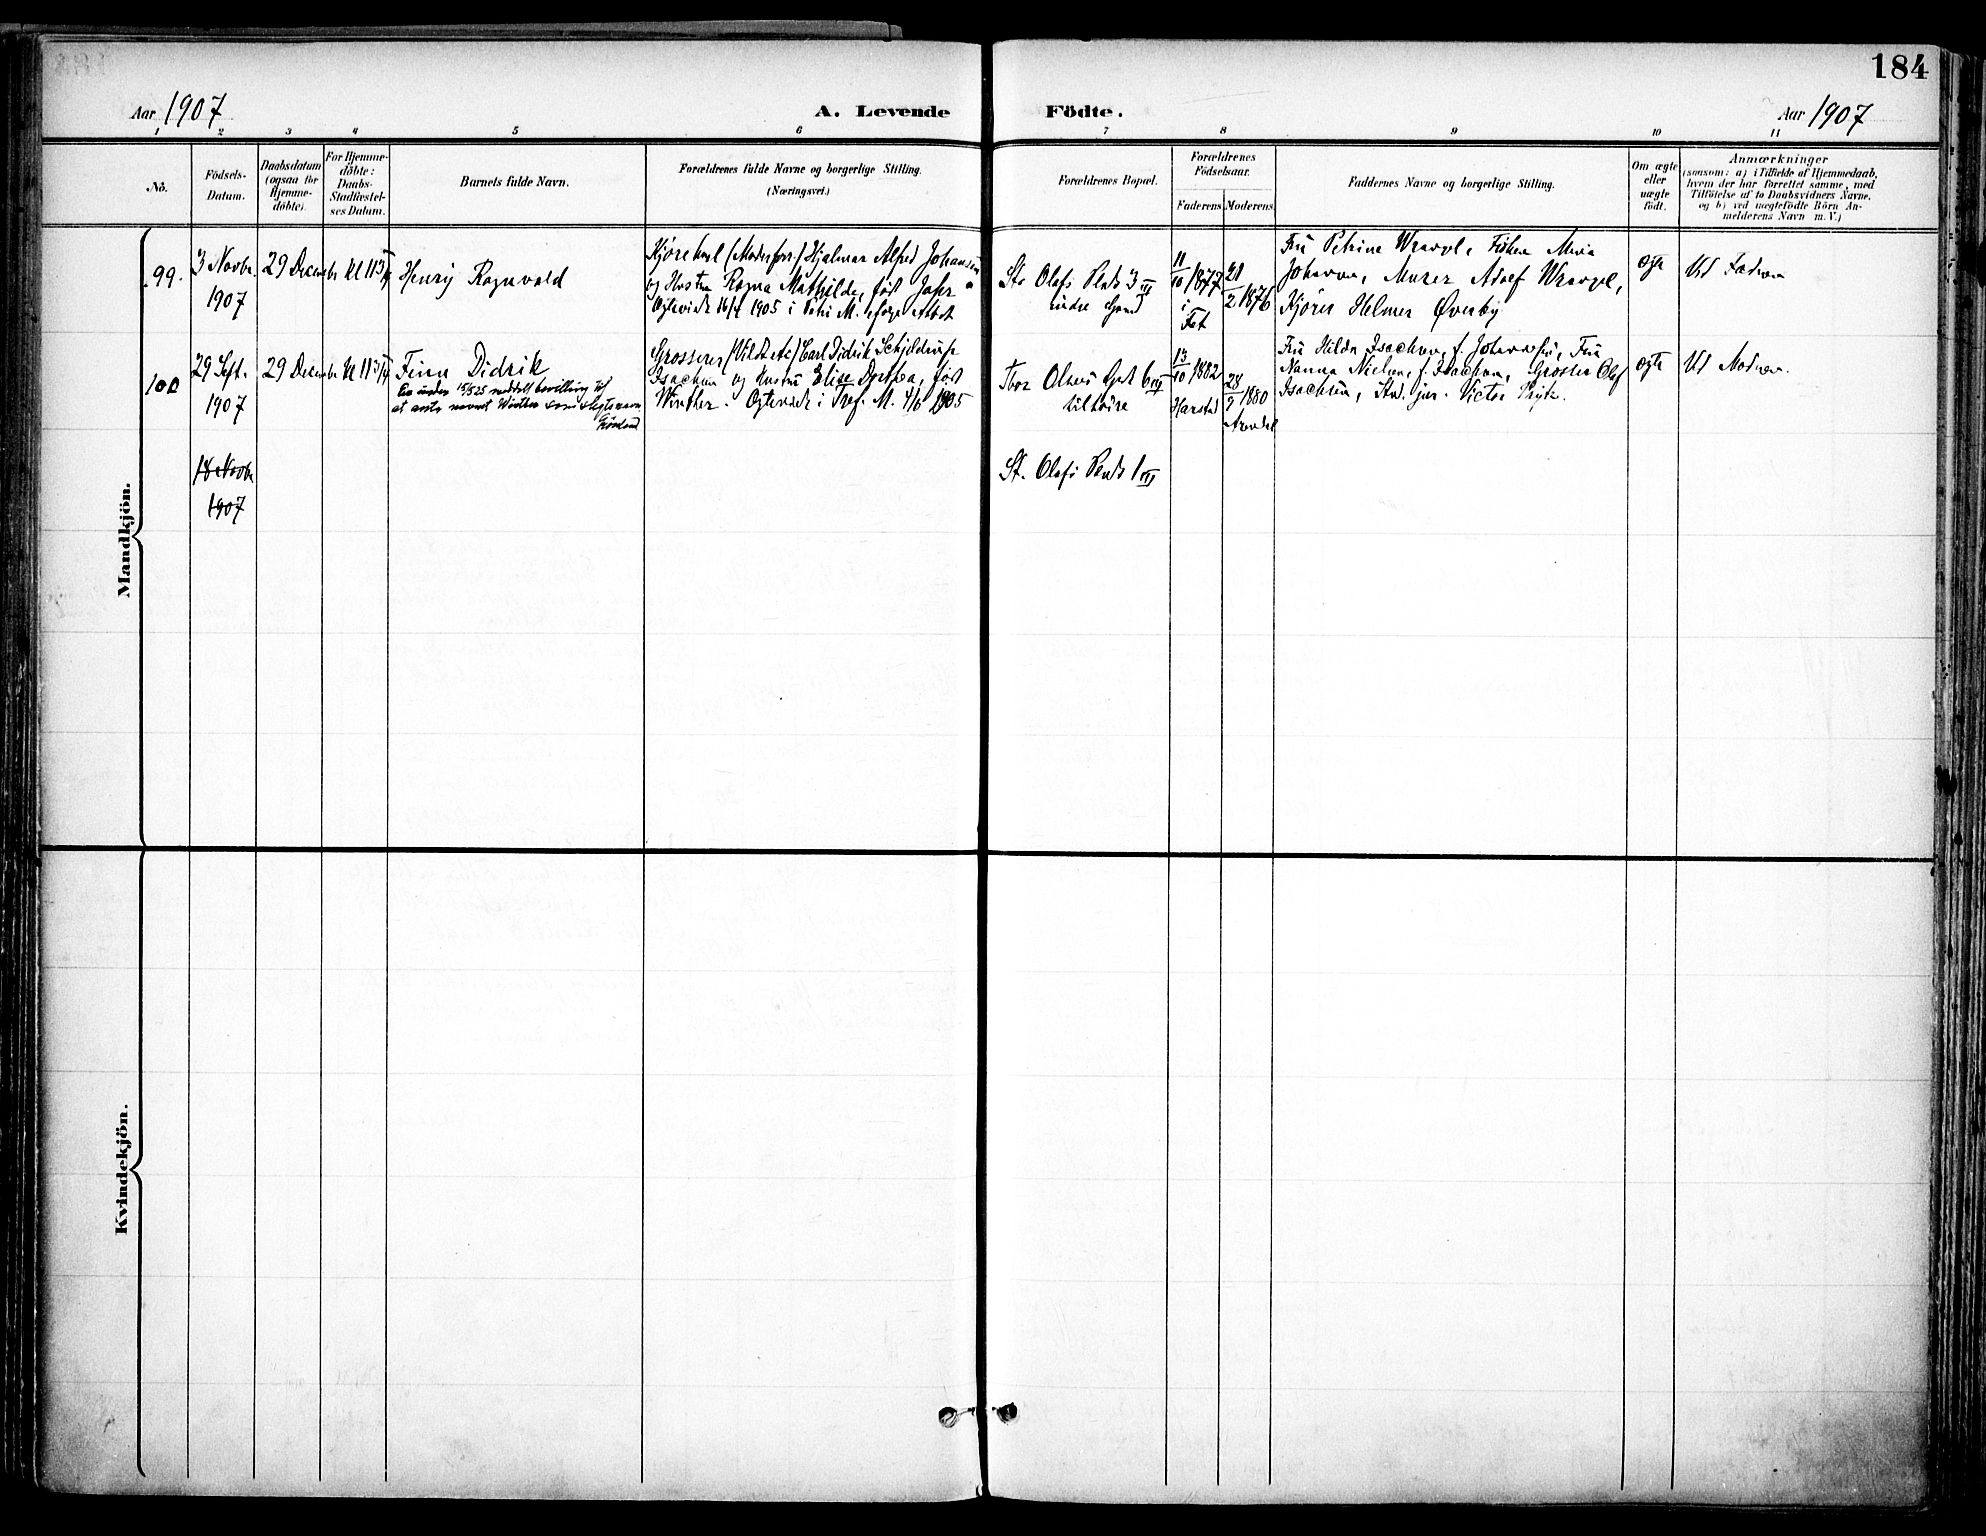 184
Aar 1907
A. Levende
Födte.
Aar 1907
1 2 3 4 5 6 7 8 9 10 11
No.
Födsels-
Datum.
Daabsdatum
(ogsaa for
Hjemme-
döbte).
For Hjemme-
döbte:
Daabs-
Stadfæstel-
ses Datum.
Barnets fulde Navn.
Forældrenes fulde Navne og borgerlige Stilling.
(Næringsvei.)
Forældrenes Bopæl.
Forældrenes
Födselsaar.
Faderens
Moderens
Faddernes Navne og borgerlige Stilling.
Om ægte
eller
uægte
født.
Anmærkninger
(saasom: a) i Tilfælde af Hjemmedaab,
hvem der har forrettet samme, med
Tilföielse af to Daabsvidners Navne,
og b) ved uægtefödte Börn An-
melderens Navn m. V.)
Mandkjön.
99.
3 Novbr.
1907
29 Decem
Henry Ragnvald
Hjalmar Alfred Johansen
og Hustru Ragna Mathilde, født Jahr
Ægteviede 16/4 1905 i Petri M.
St. Olafs Plads 3 III
indre Gaard
11/10 1877
i
Fet
21/2 1876
Fru Petrine Wrangel,
Johansen, Murer Adolf Wrangel,
Kjører Helmer Øverby
ægte
Ud Faderen
100
29 Sept.
1907
29 Decem
Finn Didrik
15/5 25 meddelt bevilling til
at anta navnet
Grosserer (Vildt etc) Carl Didrik Schjelderup
Isachsen og Hustru Elise Dorthea, født
Winther. Ægteviede i Tref. M. 4/6 1905
Thor Olsens Gade 6 III
tilhøire
13/10 1882
Harstad
28/9 1880
Arendal
Fru Hilda Isachsen, f. Johannesen, Fru
Nanna Nielsen, f. Isachsen, Grosser Olaf
Isachsen, Stud. jur. Victor
ægte
Ud Moderen
18 Novbr
1907
St. Olafs Plads 1 III
Kvindekjön.